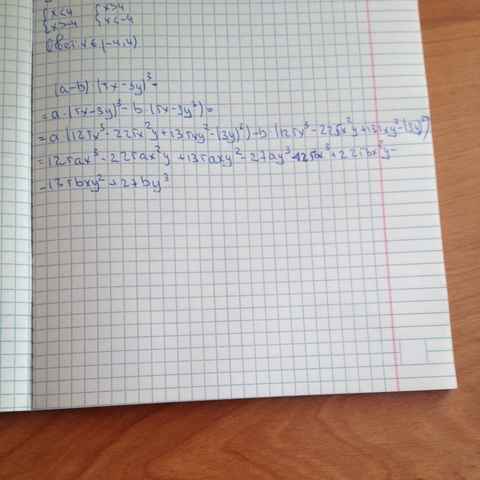 {x<4 {x>4
{x>-4 {x<-4
Ответ: x∈(-4,4)
(a-b)·(5x-3y)³=
=a·(5x-3y)³-b·(5x-3y³)=
=a(125x³-225x²y+135xy²-(3y)³)-b·(125x³-225x²y+135xy²-(3y)³)
=125ax³-225ax²y+135axy²-27ay³-125bx³+225bx²y-
-135bxy²+27by³